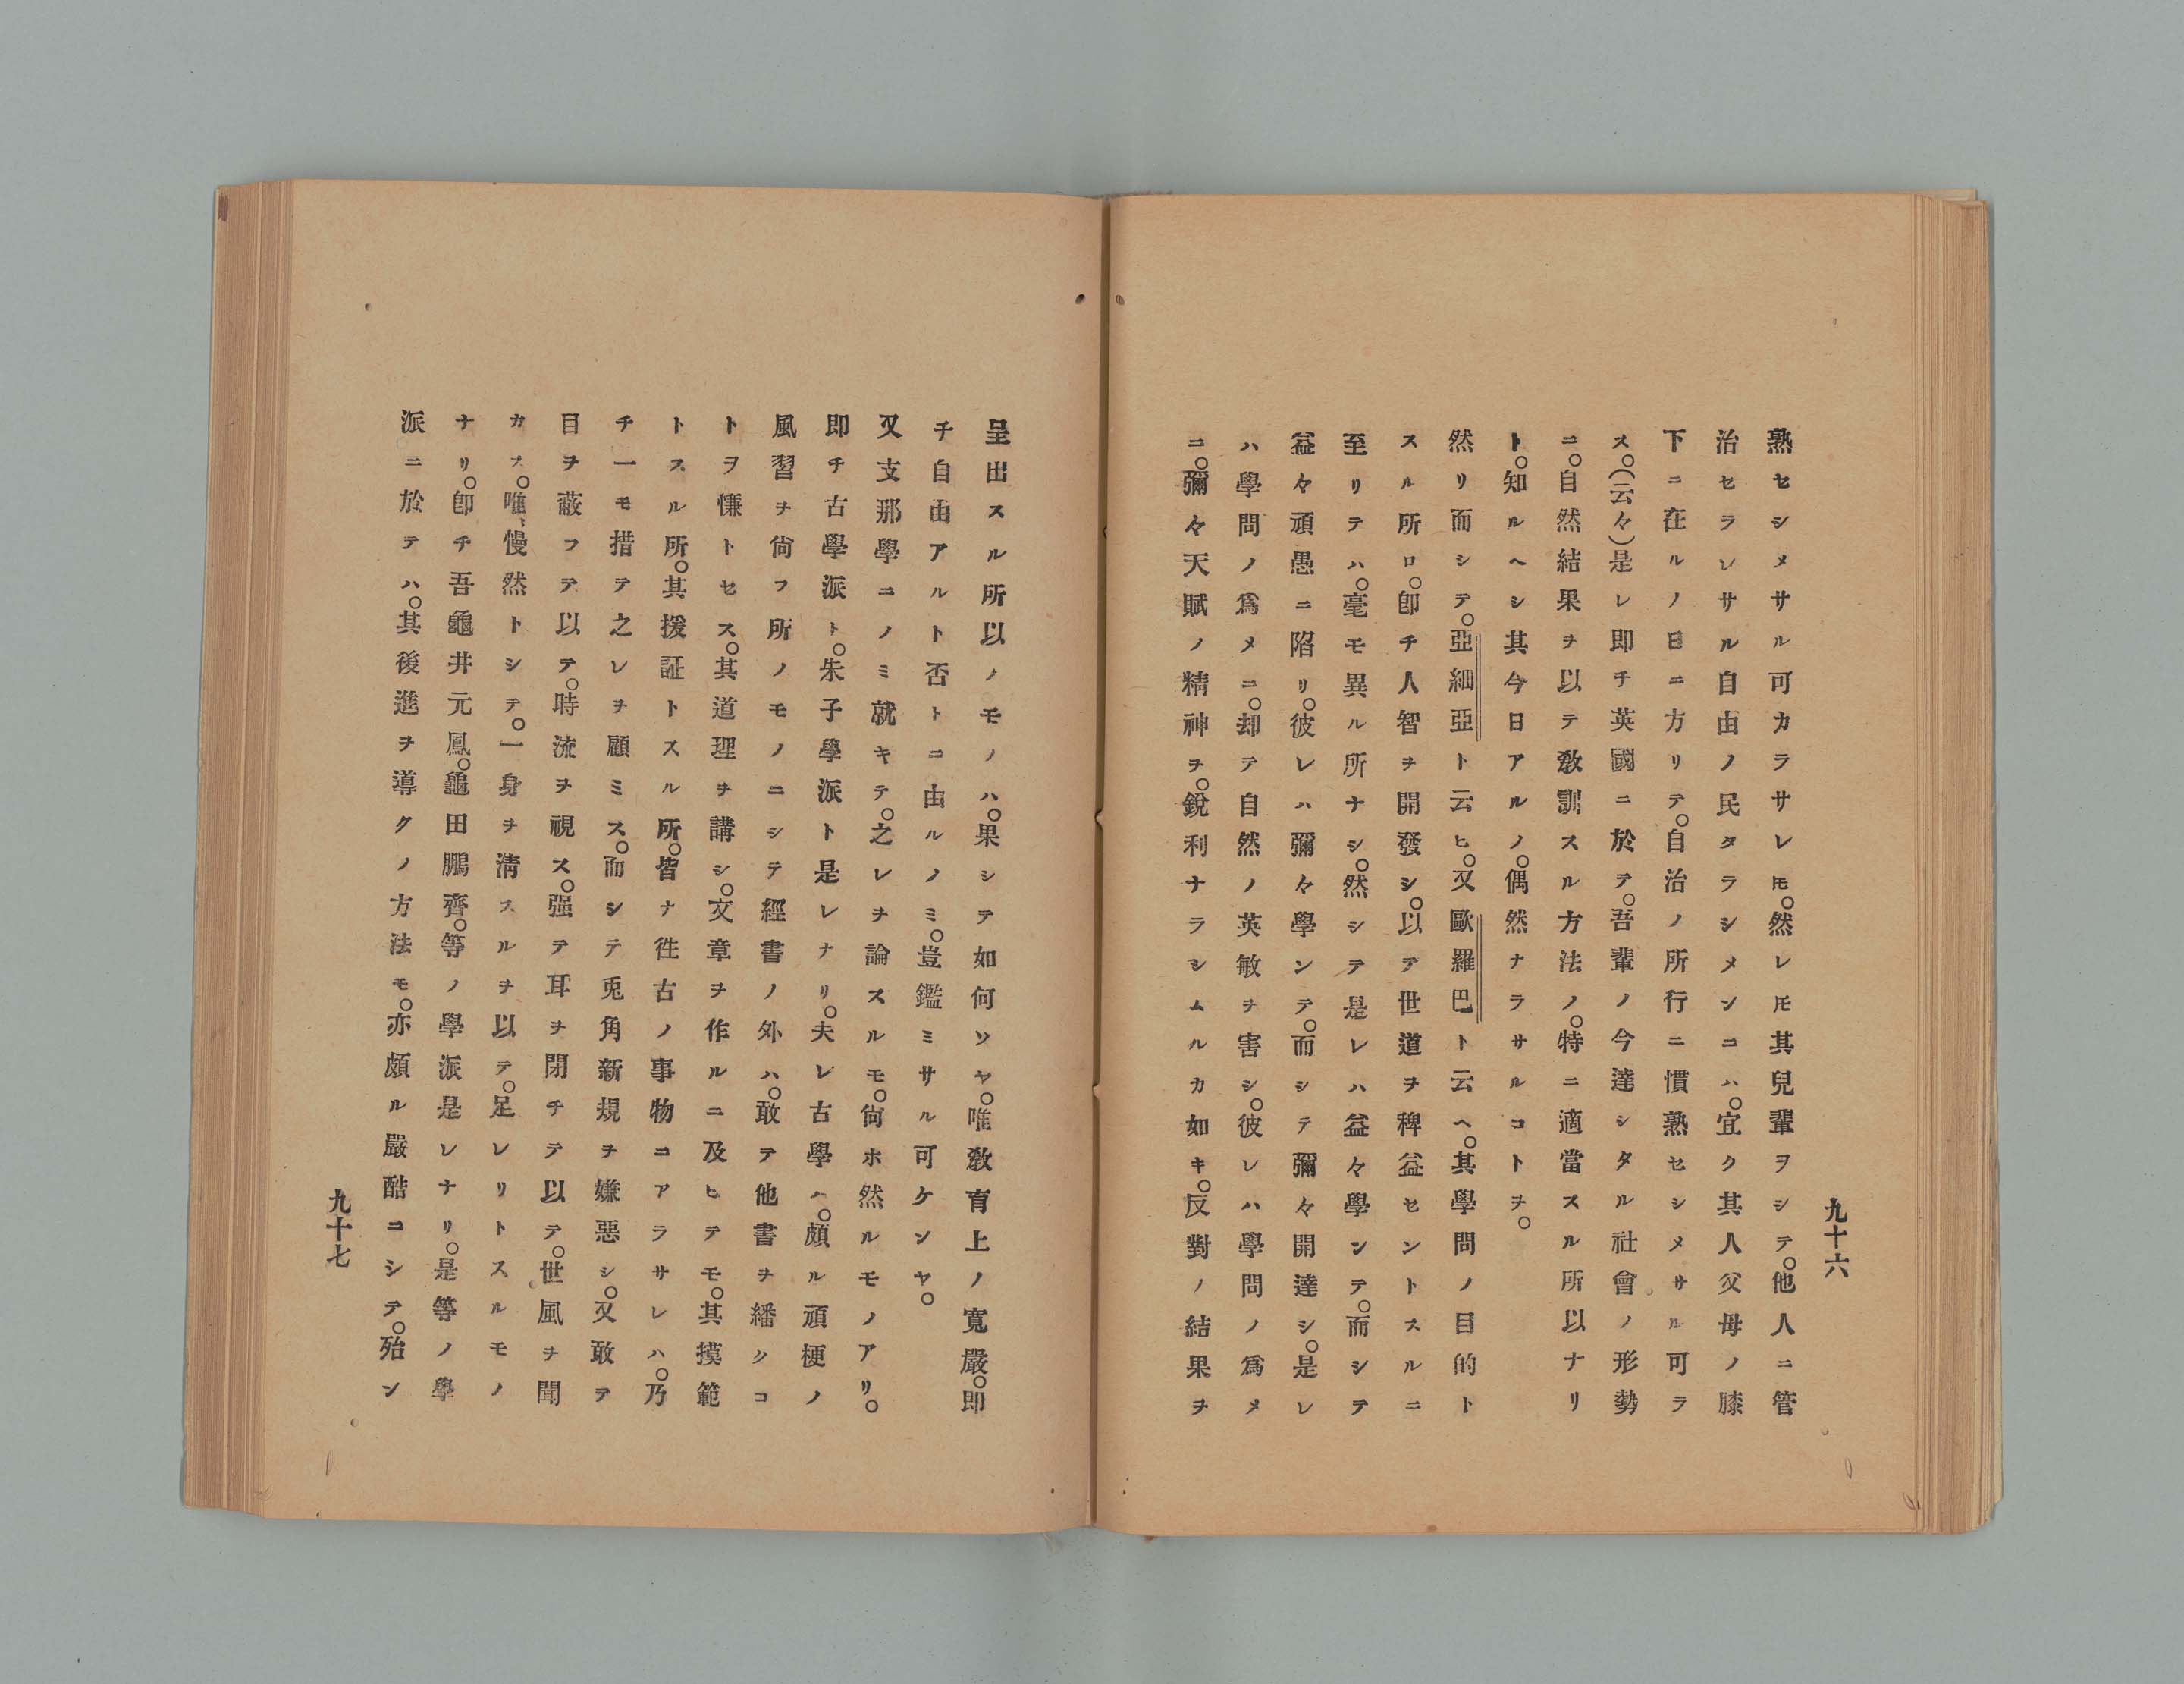 熟セシメサル可カラサレ𪜈。然レ𪜈其兒輩ヲシテ。他人ニ管
治セラレサル自由ノ民タラシメンコハ。宜ク其人父母ノ膝
下ニ在ルノ日ニ方リテ。自治ノ所行ニ慣熟セシメサル可ラ
ス。(云々)是レ即チ英國ニ於テ。吾輩ノ今達シタル社會ノ形勢
ニ。自然結果ヲ以テ敎訓スル方法ノ。特ニ適當スル所以ナリ
ト。知ルヘシ其今日アルノ。偶然ナラサルコトヲ。
然リ而シテ。亞細亞ト云ヒ。又歐羅巴ト云ヘ。其學問ノ目的ト
スル所ロ。卽チ人智ヲ開發シ。以テ世道ヲ稗益セントスルニ
至リテハ。毫モ異ル所ナシ。然シテ是レハ益々學ンテ。而シテ
益々頑愚ニ陷リ。彼レハ彌々學ンテ。而シテ彌々開達シ。是レ
ハ學問ノ爲メニ。却テ自然ノ英敏ヲ害シ。彼レハ學問ノ爲メ
ニ。彌々天賦ノ精神ヲ。銳利ナラシムルカ如キ。反對ノ結果ヲ
九十六
呈出スル所以ノモノハ。果シテ如何ソヤ。唯敎育上ノ寬嚴。即
チ自由アルト否トコ由ルノミ。豈鑑ミサル可ケンヤ。
又支那學ニノミ就キテ。之レヲ論スルモ。尙ホ然ルモノアリ。
即チ古學派ト。朱子學派ト是レナリ。夫レ古學ハ。頗ル頑梗ノ
風習ヲ尙フ所ノモノニシテ經書ノ外ハ。敢テ他書ヲ繙クコ
トヲ慊トセス。其道理ヲ講シ。文章ヲ作ルニ及ヒテモ。其摸範
トスル所。其援証トスル所。皆ナ徃古ノ事物コアラサレハ。乃
チ一モ措テ之レヲ顧ミス。而シテ兎角新規ヲ嫌惡シ。又敢テ
目ヲ蔽フテ以テ。時流ヲ視ス。强テ耳ヲ閉チテ以テ。世風ヲ聞
カス。唯、慢然トシテ。一身ヲ淸スルヲ以テ。足レリトスルモノ
ナリ。卽チ吾龜井元鳳。龜田鵬齊。等ノ學派是レナリ。是等ノ學
派ニ於テハ。其後進ヲ導クノ方法モ。亦頗ル嚴酷コシテ。殆ン
九十七